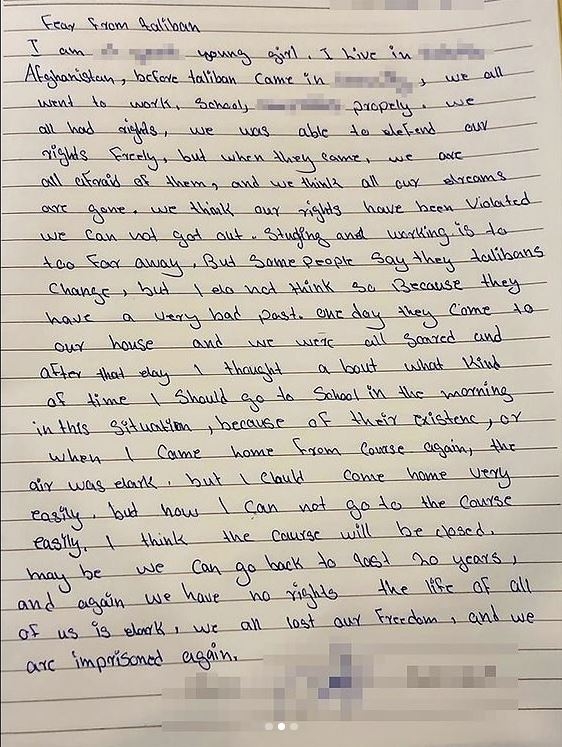 Fear From taliban
I am young girl. I Live in
Afghanistan, before taliban Came in , we all
went to work, School, propely. we
all had rights, we was able to defend our
rights Freely, but when they came, we are
all afraid of them, and we think all our dreams
are gone. we think our rights have been Violated
we can not got out. Studing and working is to
too Far away. But Some People Say they talibans
Change, but I do not think so Because they
have a very bad past. one day they Come to
our house and we were all Scared and
after that day I thought a bout what Kind
of time I Should go to School in the morning
in this Situation, because of their existenc, or
when I Came home From Course again, the
air was dark. but I Could Come home very
easily. but now I Can not go to the Course
easily. I think the Course will be closed.
may be we Can go back to last 20 years,
and again we have no rights the life of all
of us is dark, we all lost our Freedom, and we
are imprisoned again.